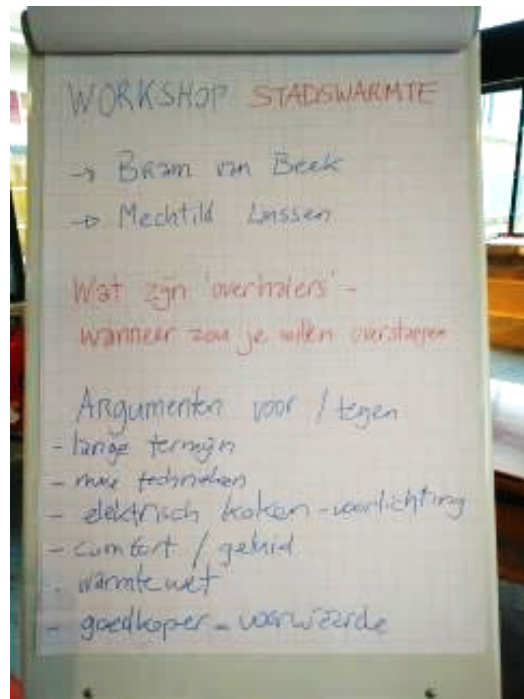 WORKSHOP STADSWARMTE
→ Bram van Beek
→ Mechtild Lassen
Wat zijn 'overhalers' -
wanneer zou je willen overstappen
Argumenten voor / tegen
- lange termijn
- technieken
- elektrisch koken - voorlichting
- comfort / geluid
. warmtewet
- goedkoper - voorwaarde